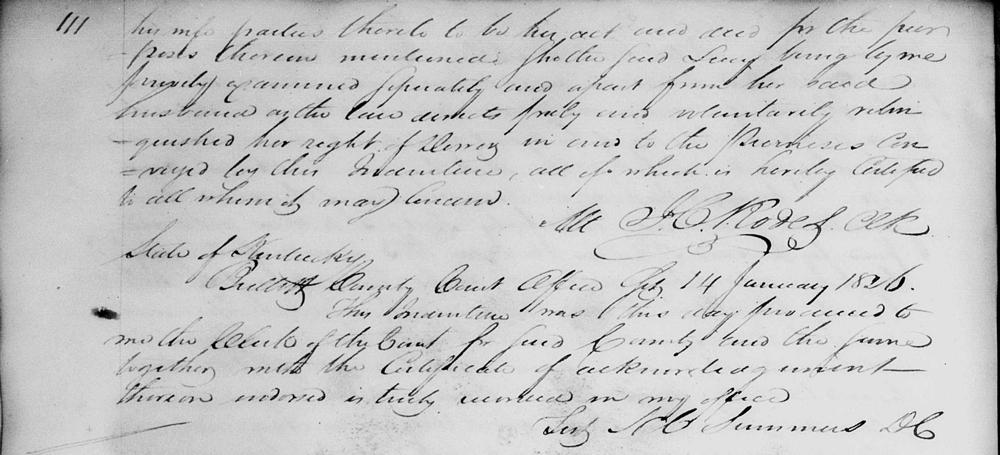 111
his wife parties thereto to be her act and deed for the pur
-poses therein mentioned. She the said Lucy being by me
privily examined seperately and apart from her said
husband as the law directs freely and voluntarily relin
-quished her right of Dower in and to the Premises Con
-veyed by this Indenture, all of which is hereby Certified
to all whom it may Concern.
Att J. C. Clk
State of Kentucky
Bullitt County Court Office 14 January 1826.
This Indenture was this day produced to
me the Clerk of the Court for said County and the same
together with the Certificate of acknowledgment
thereon endorsed is truly recorded in my office
Test Summers DC